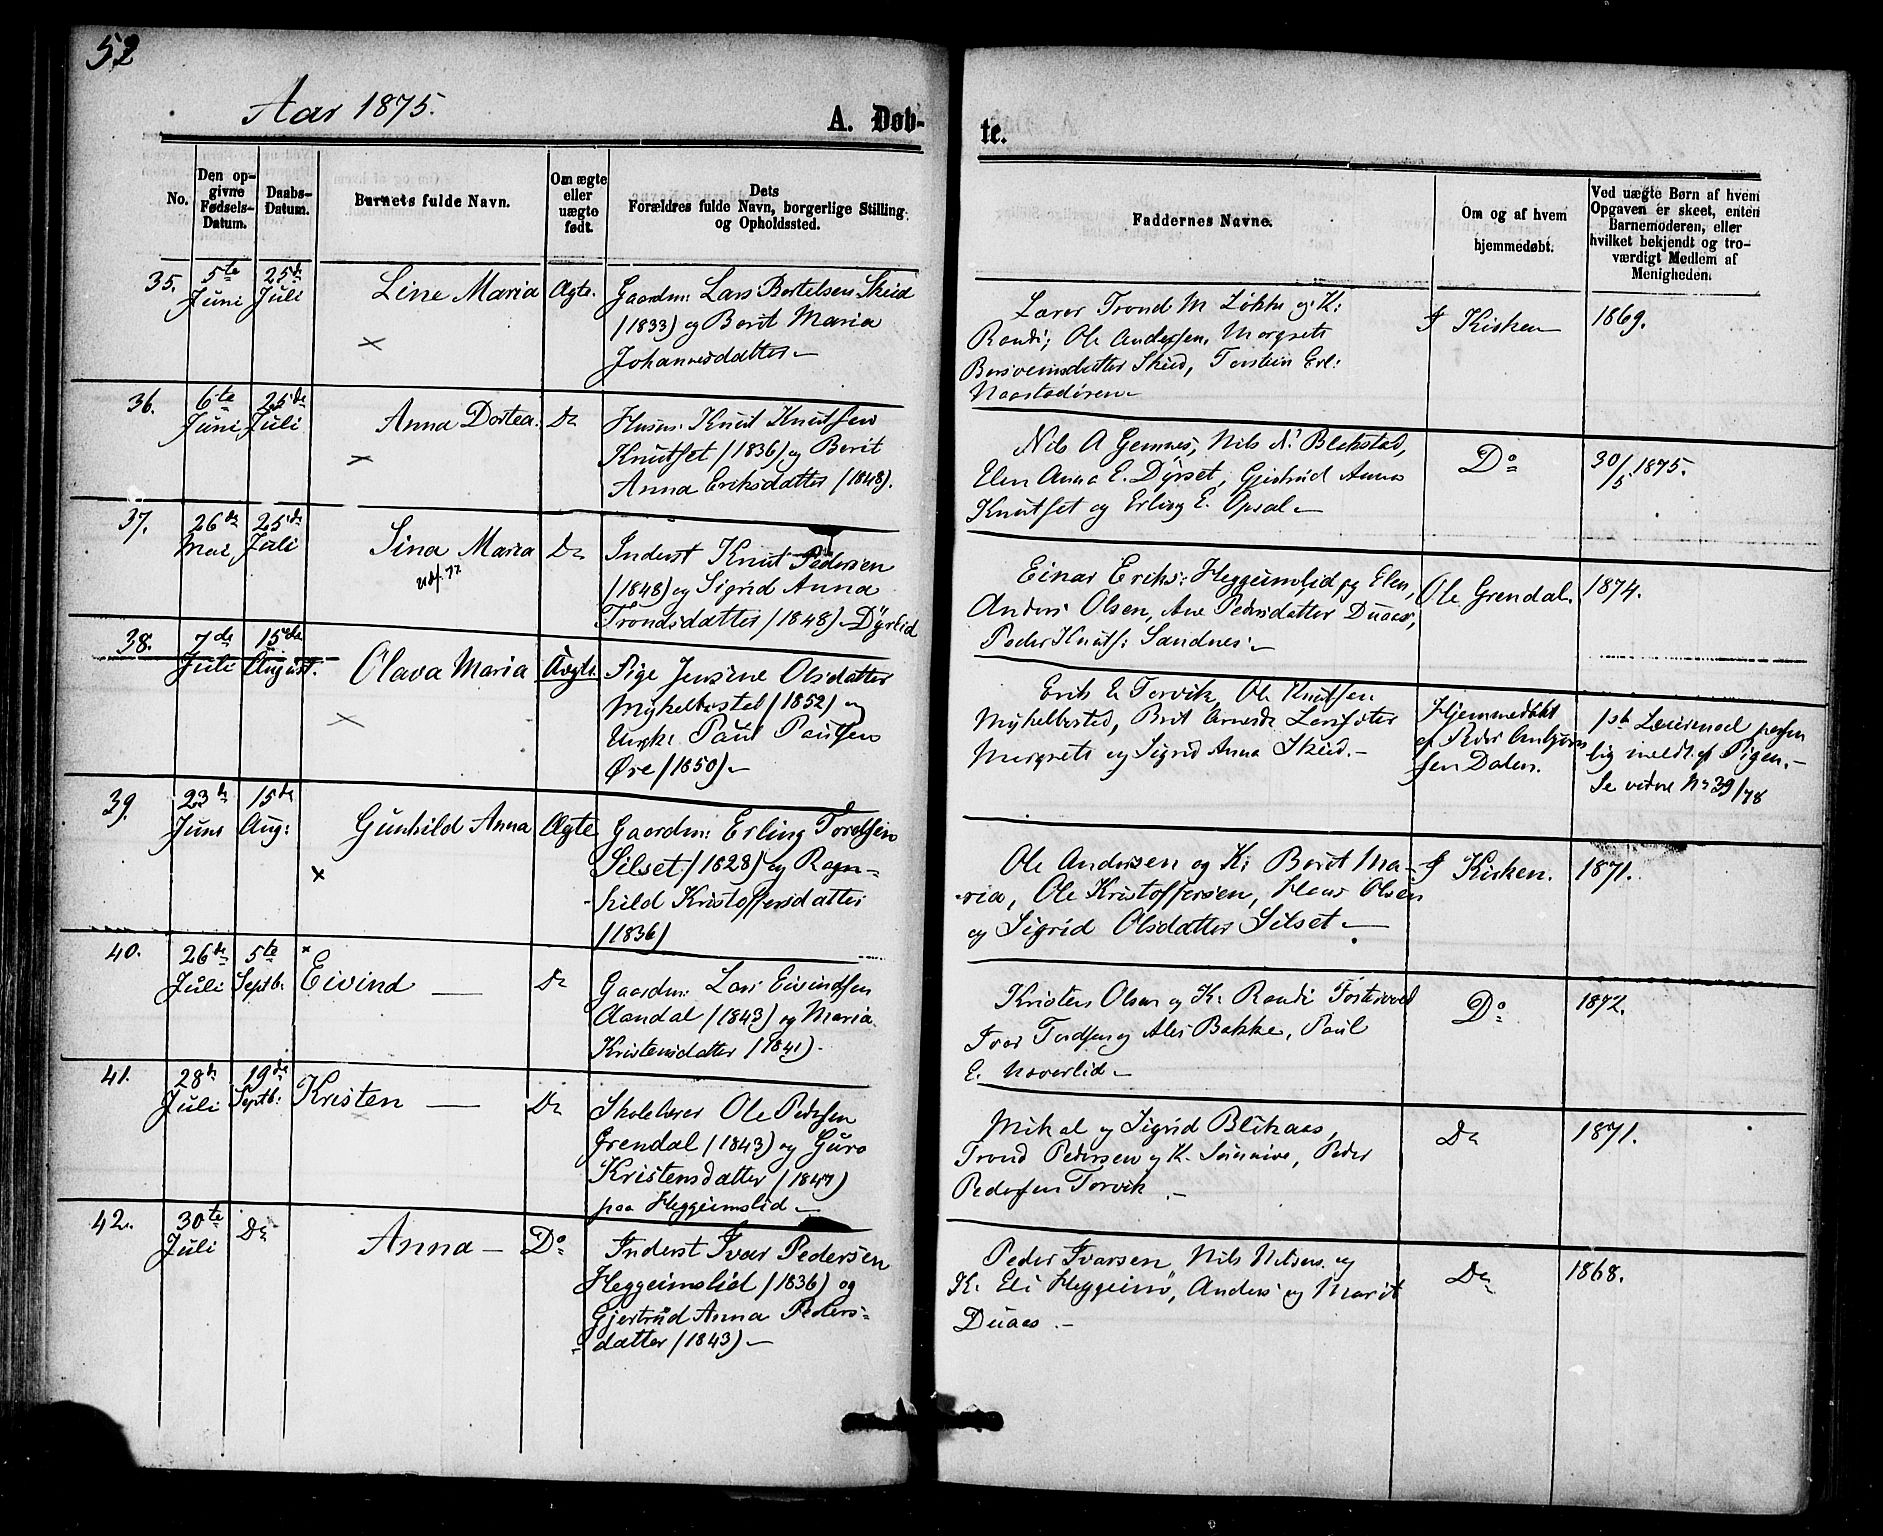 52
Aar 1875.
A. Døb-
te.
No.
Den op-
givne
Fødsels-
Datum.
Daabs-
Datum.
Barnets fulde Navn.
Om ægte
eller
uægte
født.
Dets
Forældres fulde Navn, borgerlige Stilling
og Opholdssted.
Faddernes Navne.
Om og af hvem
hjemmedøbt.
Ved uægte Børn af hvem
Opgaven er skeet, enten
Barnemoderen, eller
hvilket bekjendt og tro-
værdigt Medlem af
Menigheden.
35.
5te
Juni
25de
Juli
Line Maria
Ægte.
Gaardm: Lars Bertelsen Skud
(1833) og Berit Maria
Johannesdatter
Lærer Trond M Løkke og K:
Randi, Ole Andersen, Margrete
Skud, Torstein Erl:
Naastadøren
I Kirken
1869.
36.
6te
Juni
25de
Juli
Anna Dortea.
Do
Husm: Knut Knutsen
Knutset (1836) og Berit
Anna Eriksdatter (1848).
Nils A Gemnes, Nils N. Blekstad,
Elen Anna E. Dyrset, Gjertrud Anna
Knutset og Erling E. Opsal
Do
30/5 1875.
37.
26de
Mai
25de
Juli
Sina Maria
Udf. 77
Do
Inderst Knut Pedersen
(1848) og Sigrid Anna
Trondsdatter (1848) Dyrlid
Einar Eriks: Heggeimslid og Elen,
Anders Olsen, Ane Pedersdatter Duaas,
Peder Knuts: Sandnes
Ole Grendal.
1874.
38.
7de
Juli
15de
August.
Olava Maria
Uægte.
Pige Jensine Olsdatter
Mykelbostad (1852) og
Ungk: Paul Paulsen
Øre (1850)
Erik E. Torvik, Ole Knutsen
Mykelbostad, Brit
Margrete og Sigrid Anna Skud.
Hjemmedøbt
af Peder
sen Dalen.
1ste Leiermaal person
lig meldt af Pigen.
Se videre No 39/78
39.
23de
Juni
15de
Aug:
Gunhild Anna
Ægte
Gaardm: Erling Tordsen
Silset (1828) og Ragn-
hild Kristoffersdatter
(1836)
Ole Andersen og K: Berit Ma-
ria, Ole Kristoffersen, Hans Olsen
og Sigrid Olsdatter Silset
I Kirken.
1871.
40.
26de
Juli
5te
Septb:
Eivind
Do
Gaardm: Lars Eivindsen
Aandal (1843) og Maria
Kristensdatter (1841).
Kristen Olsen og K: Randi
Ivar Tordsen og Ales Bakke, Paul
E. Naverlid
Do
1872.
41.
28de
Juli
19de
Septb:
Kristen
Do
Skolelærer Ole Pedersen
Grendal (1843) og Guro
Kristensdatter (1847)
paa Heggeimslid
Mikal og Sigrid Blikaas,
Trond Pedersen og K. Sunnive, Peder
Pedersen Torvik
Do
1871.
42.
30te
Juli
Do
Anna
Do
Inderst Ivar Pedersen
Heggeimslid (1836) og
Gjertrud Anna Peders-
datter (1843)
Peder Ivarsen, Nils Nilsen og
K. Eli Heggeim, Anders og Marit
Duaas.
Do
1868.